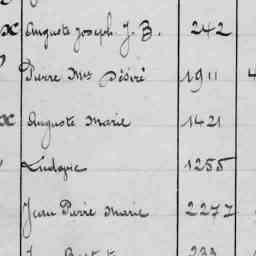 x Auguste Joseph J. B. 242
Pierre Mie Désiré 1911
x Auguste Marie 1421
Ludovic 1255
Jean Pierre Marie 2277
233